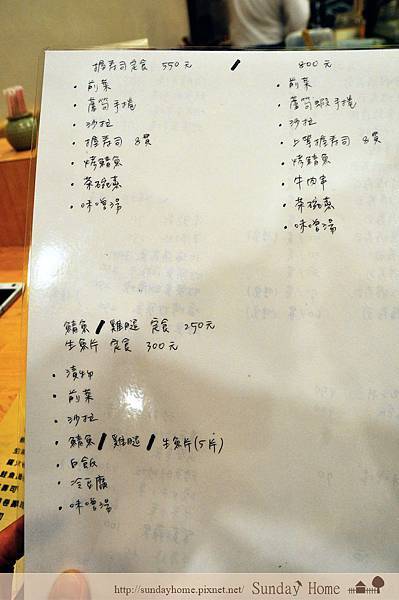 握壽司定食 550元 / 800元
・前菜
・蘆筍手捲
・沙拉
・握壽司 8貫
・烤鯖魚
・茶碗蒸
・味噌湯
・前菜
・蘆筍蝦手捲
・沙拉
・上等握壽司 8貫
・烤鯖魚
・牛肉串
・茶碗蒸
・味噌湯
鯖魚/雞腿 定食 250元
生魚片 定食 300元
・漬物
・前菜
・沙拉
・鯖魚/雞腿/生魚片(5片)
・白飯
・冷豆腐
・味噌湯
http://sundayhome.pixnet.net/ Sunday Home